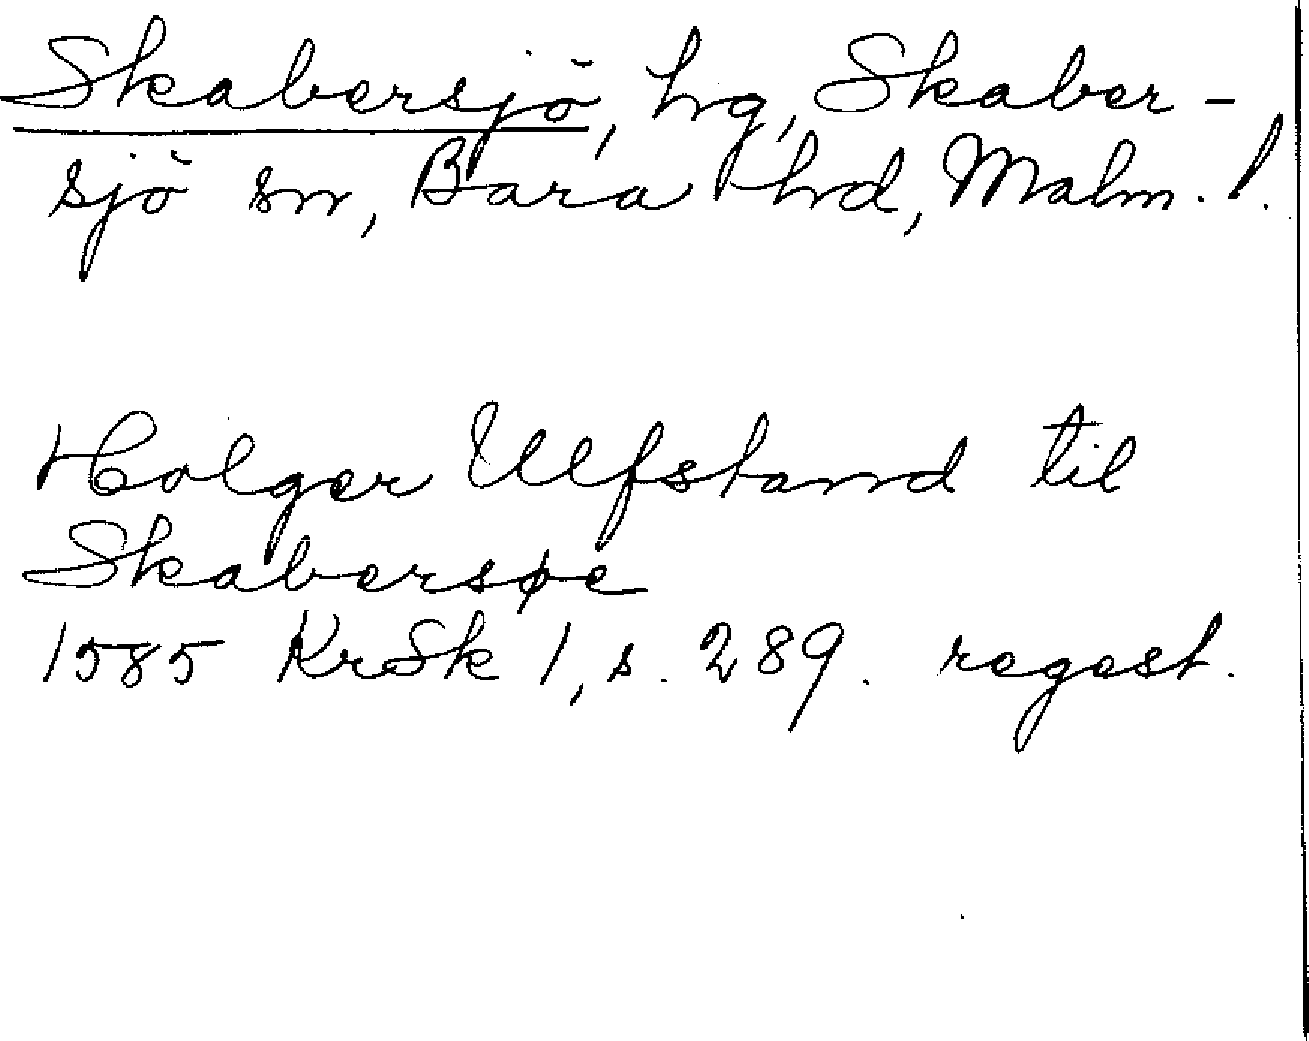 Skabersjö, hg, Skaber-
sjö sn, Bara hd, Malm. l.
Holger Ulfstand til
Skabersøe
1585 KrSk 1, s. 289. regest.